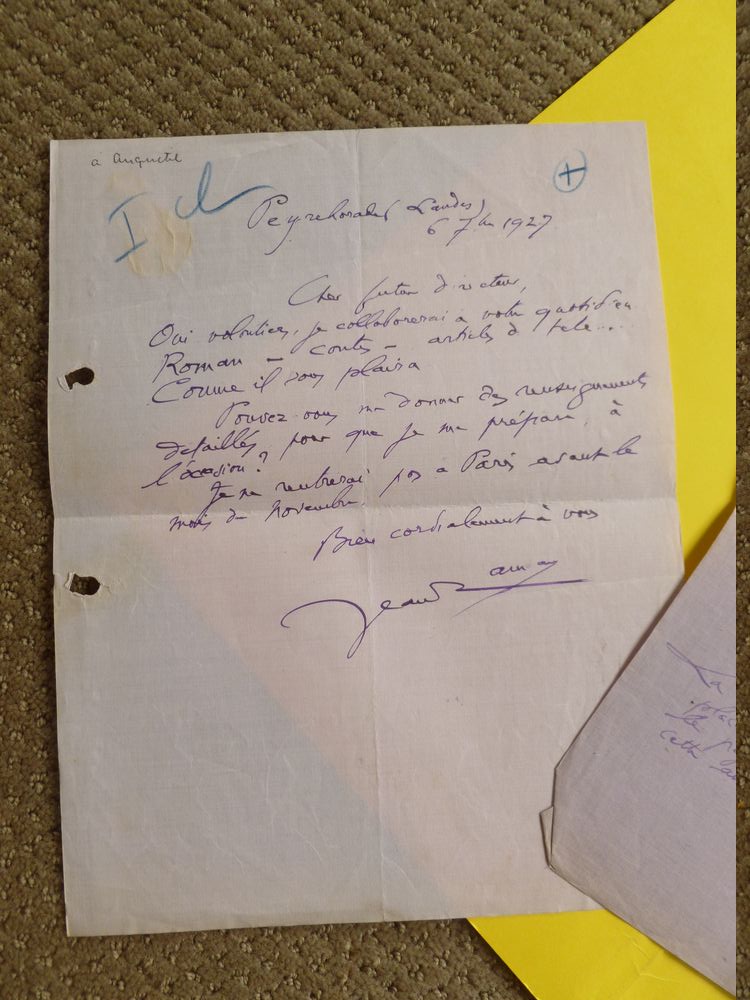 à Anquetil
I
Peyrehorade (Landes)
6 7bre 1927
Cher futur directeur,
Oui volontiers, je collaborerai à votre quotidien
Roman – contes – articles de tête....
Comme il vous plaira
Pouvez-vous me donner des renseignements
détaillés, pour que je me prépare, à
l'occasion?
Je ne rentrerai pas à Paris avant le
mois de novembre.
Bien cordialement à vous
Jean Rameau
La